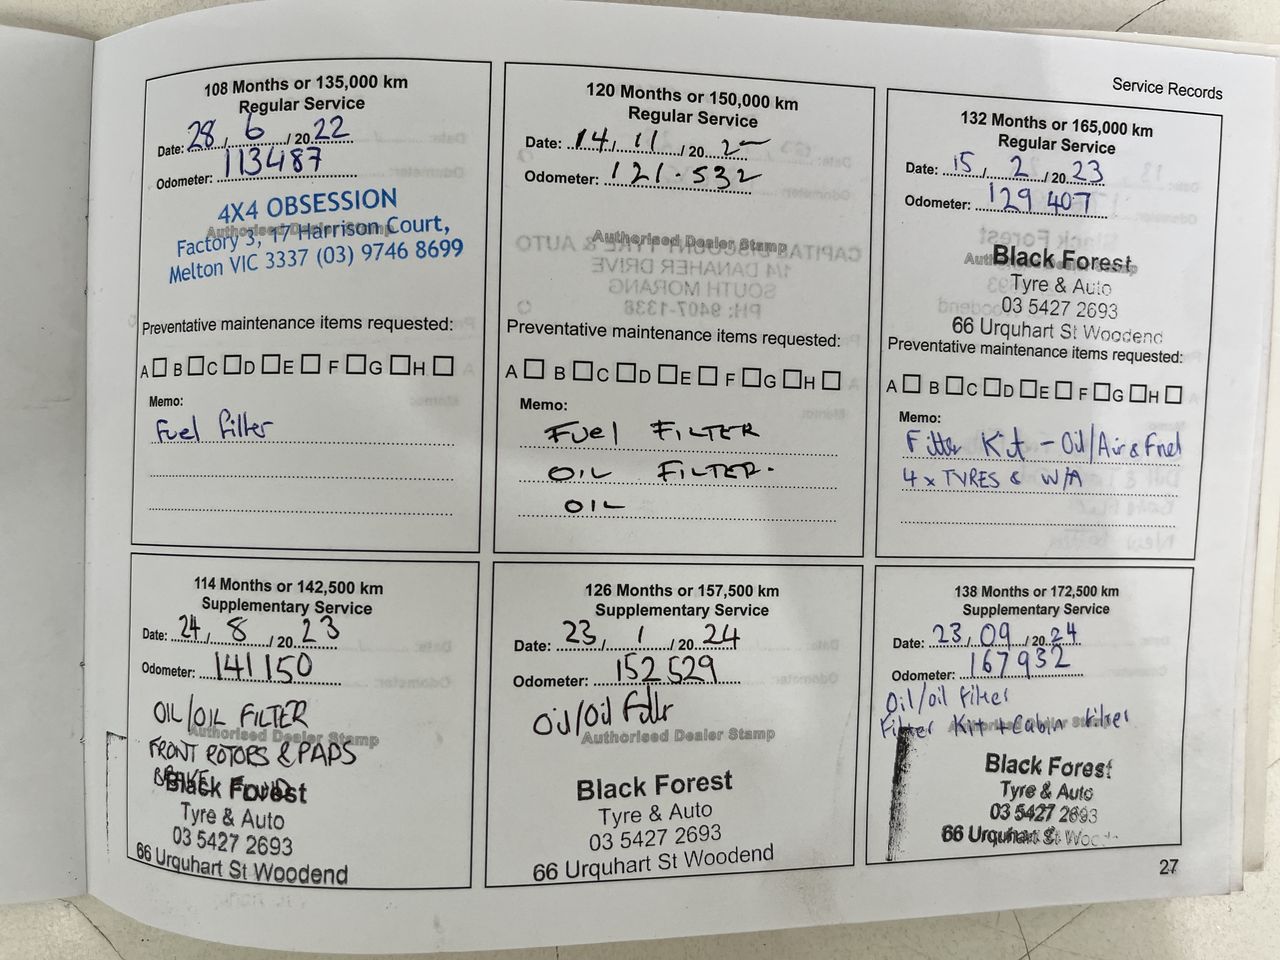 Service Records
108 Months or 135,000 km
Regular Service
Date: 28 / 6 / 20 22
Odometer: 113487
Authorised Dealer Stamp
4X4 OBSESSION
Factory 3, 17 Harrison Court,
Melton VIC 3337 (03) 9746 8699
Preventative maintenance items requested:
A B C D E F G H
Memo:
Fuel filter
120 Months or 150,000 km
Regular Service
Date: 14 / 11 / 20 2
Odometer: 121.532
Authorised Dealer Stamp
CAPITAL DISCOUNT TYRE & AUTO
1/4 DANAHER DRIVE
SOUTH MORANG
PH: 9407-1338
Preventative maintenance items requested:
A B C D E F G H
Memo:
FUEL FILTER
OIL FILTER.
OIL
132 Months or 165,000 km
Regular Service
Date: 15 / 2 / 20 23
Odometer: 129 407
Authorised Dealer Stamp
Black Forest
Tyre & Auto
03 5427 2693
66 Urquhart St Woodend
Preventative maintenance items requested:
A B C D E F G H
Memo:
Filter Kit - Oil/Air & Fuel
4 x TYRES & W/A
114 Months or 142,500 km
Supplementary Service
Date: 24 / 8 / 20 23
Odometer: 141150
OIL/OIL FILTER
Authorised Dealer Stamp
FRONT ROTORS & PADS
BRAKE FLUID
Black Forest
Tyre & Auto
03 5427 2693
66 Urquhart St Woodend
126 Months or 157,500 km
Supplementary Service
Date: 23 / 1 / 20 24
Odometer: 152529
Oil/Oil
Authorised Dealer Stamp
Black Forest
Tyre & Auto
03 5427 2693
66 Urquhart St Woodend
138 Months or 172,500 km
Supplementary Service
Date: 23 / 09 / 20 24
Odometer: 167932
Oil/oil filter
Filter Kit + Cabin filter
Authorised Dealer Stamp
Black Forest
Tyre & Auto
03 5427 2693
66 Urquhart St Woodend
27